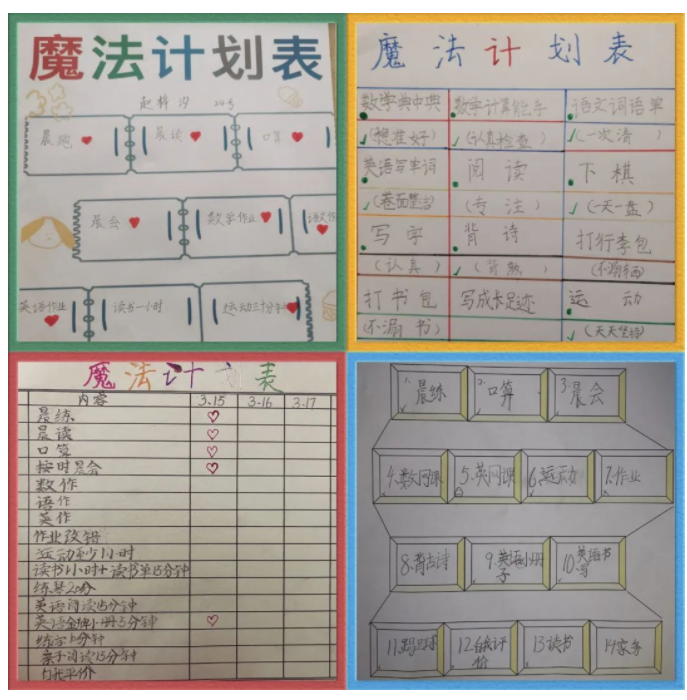 魔法计划表
赵梓汐 24号
晨跑 晨读 口算
晨会 数学作业 语文作
英语作业 读书一小时 运动三十分钟
魔法计划表
数学典中典 数学计算能手 语文词语单
(想准好) (认真检查) (一次清)
英语写单词 阅读 下棋
(卷面整洁) (专注) (一天一盘)
写字 背诗 打行李包
(认真) (背熟) (不漏东西)
打书包 写成长足迹 运动
(不漏书) (天天坚持)
魔法计划表
内容 3.15 3.16 3.17
晨练
晨读
口算
按时晨会
数作
语作
英作
作业改错
运动至少1小时
读书1小时+读书单15分钟
练琴20分
英语阅读15分钟
英语金牌小册5分钟
练字10分钟
亲子阅读15分钟
自我评价
1.晨练 2.口算 3.晨会
4.数网课 5.英网课 6.运动 7.作业
8.背古诗 9.英语小册子 10.英语书写
11.踢足球 12.自我评价 13读书 14家务